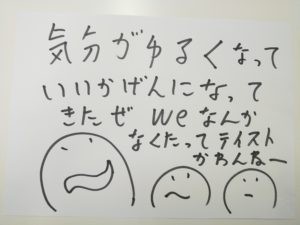 気分がゆるくなって
いいかげんになって
きたぜ weなんか
なくたってテイスト
かわんねー